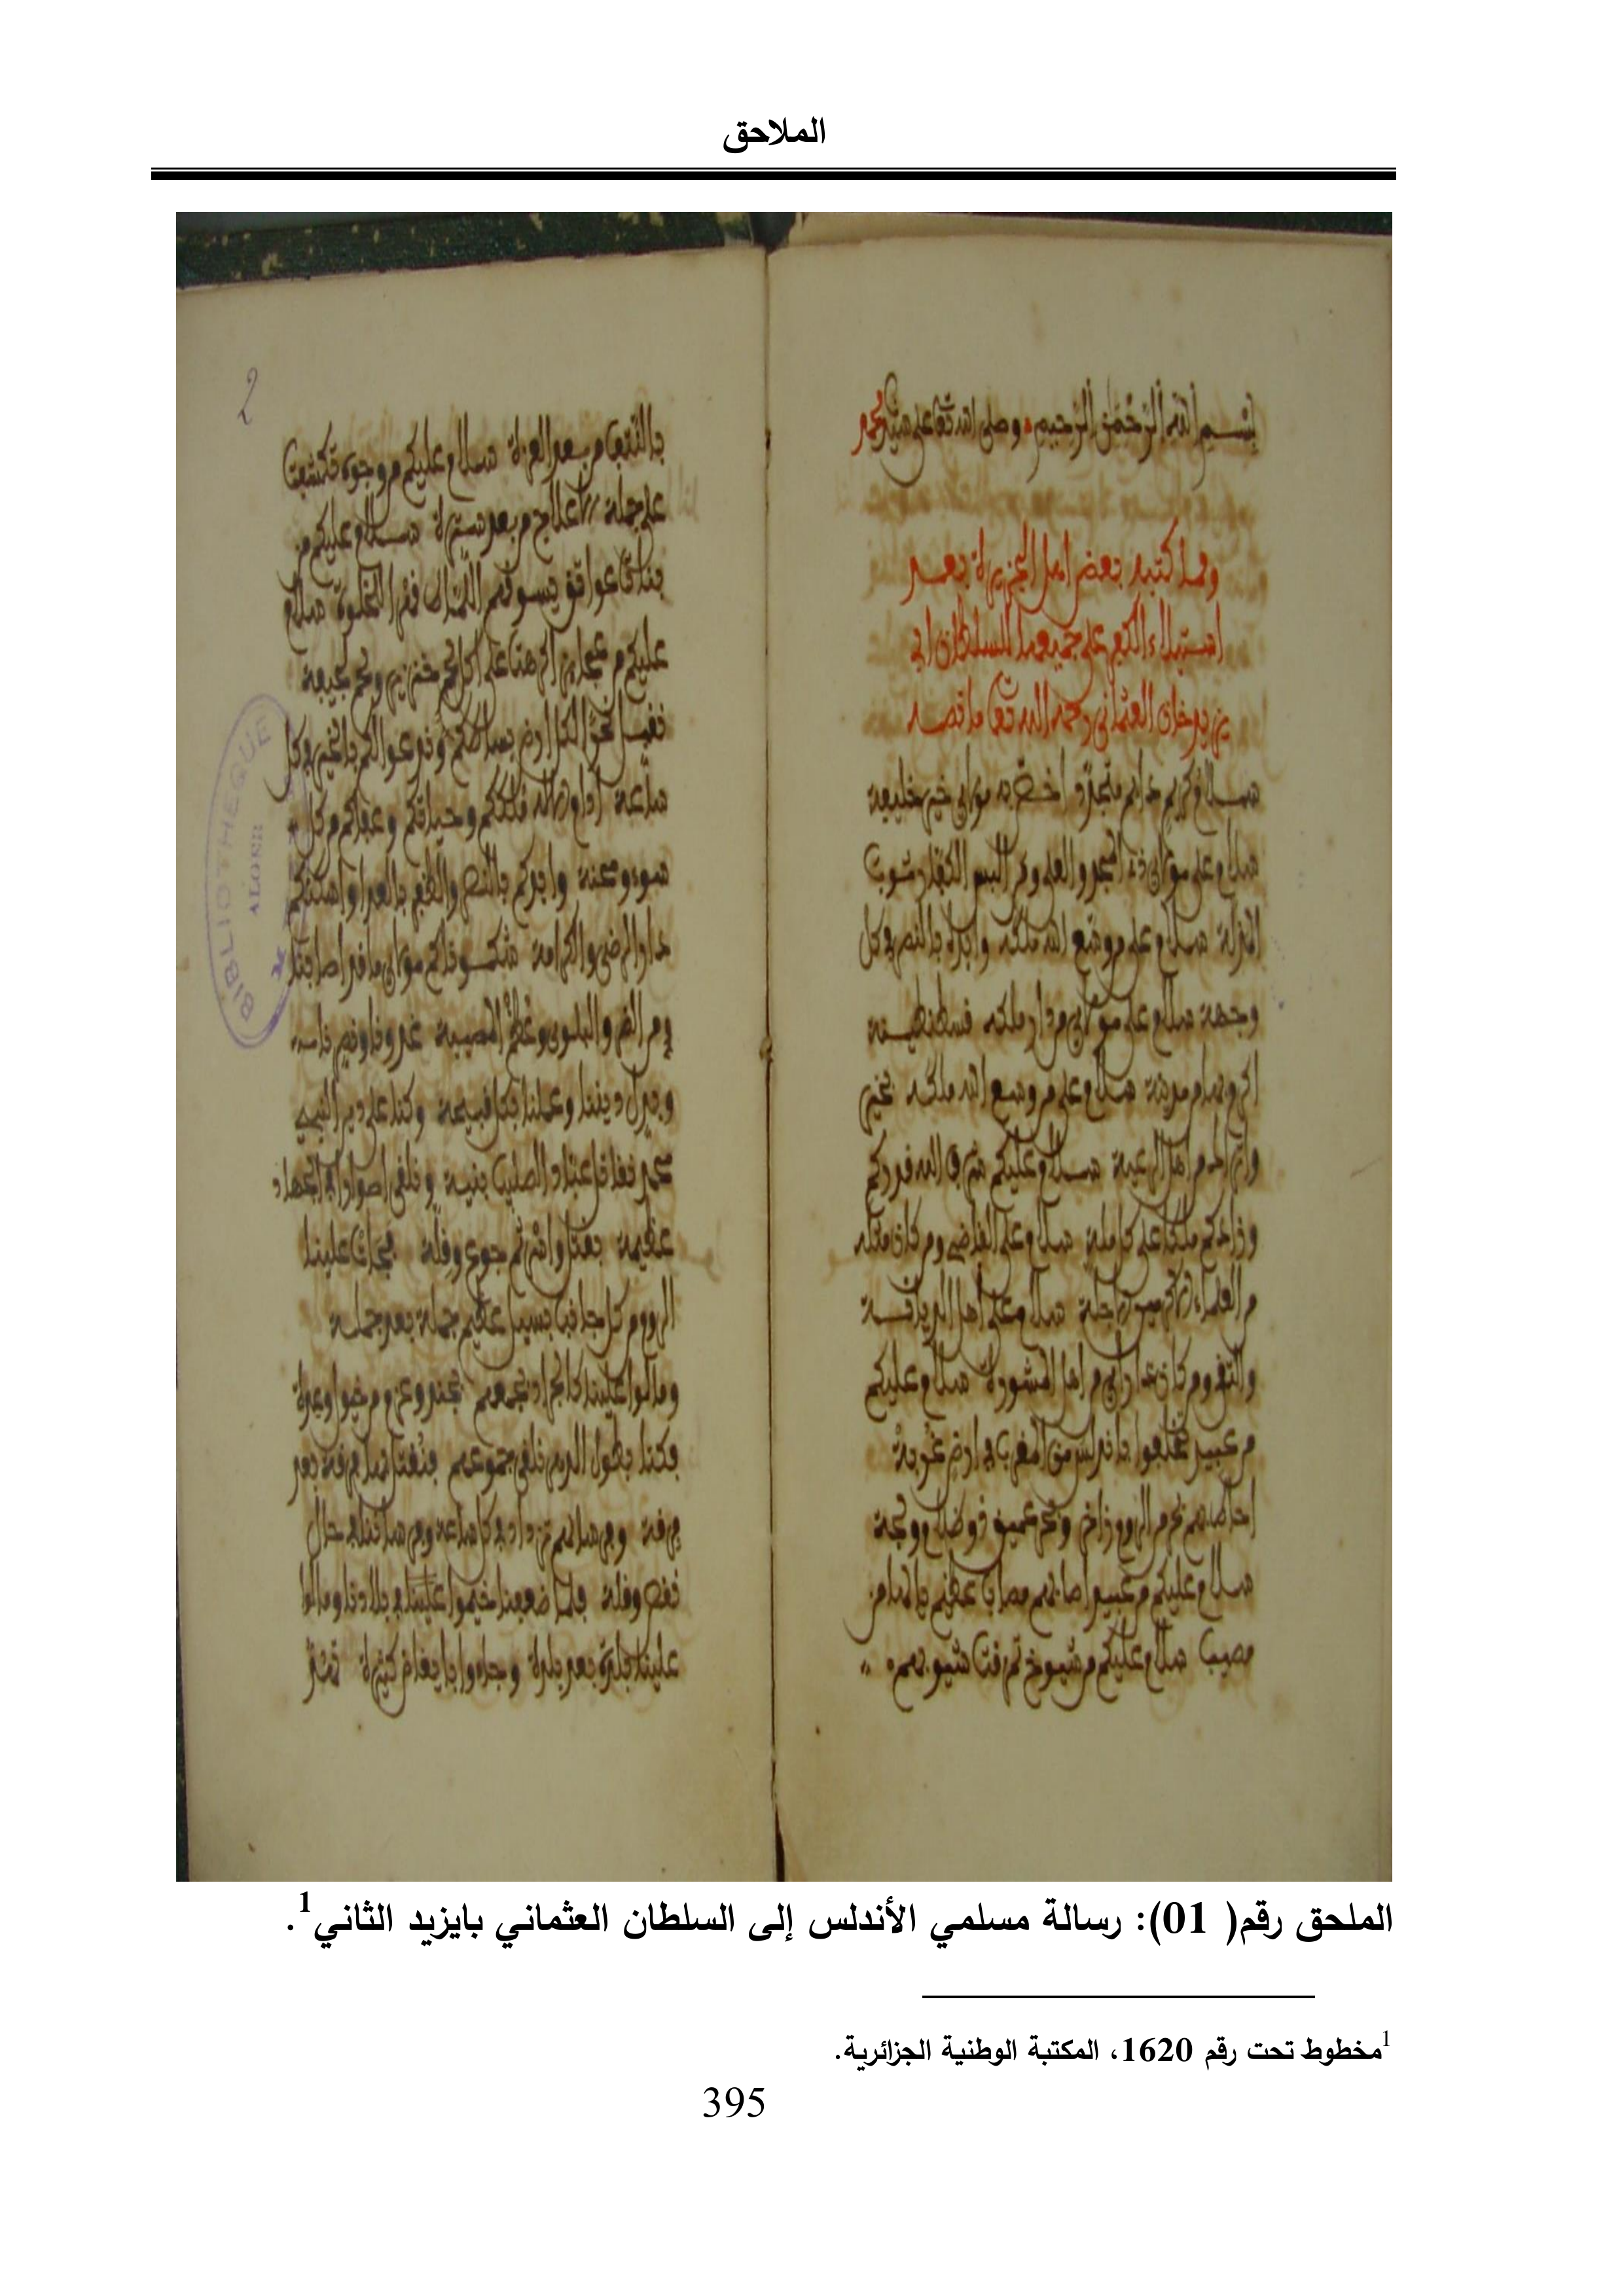 الملاحق
بسم الله الرحمن الرحيم وصلى الله تعالى على سيدنا محمد
ومما كتبه بعض اهل الجزيرة بعد
استيلاء الكفر على جميعها للسلطان ابي
يزيد خان العثماني رحمه الله تعالى ما نصه
سلام كريم دايم متجدد اخص به مولاي خير خليفة
سلام على مولاي ذي المجد والعلى ومن البس الكفار ثوب
المذلة سلام على من وسع الله ملكه وايده بالنصر في كل
وجهة سلام على مولاي من دار ملكه قسطنطينة
اكرم بها من مدينة سلام على من وسع الله ملكه
من اهل الرعية سلام عليكم شرف الله قدركم
وزادكم ملكا على كل ملة سلام على القاضي ومن كان مثله
من العلماء الاكرمين الاجلة سلام على اهل الديانة
والتقى ومن كان ذا راي من اهل المشورة سلام عليكم
من عبيد تخلفوا باندلس من المغرب في ارض غربة
احاط بهم بحر من الروم زاخر وبحر عميق ذو ظلام ولجة
سلام عليكم من عبيد اصابهم مصاب عظيم يا لها من
مصيبة سلام عليكم من شيوخ تمزقت شيوبهم
2
بالنتف من بعد العزة سلام عليكم من وجوه تكشفت
على جملة الاعلاج من بعد سترة سلام عليكم من
بنات عواتق يسوقهم اللباط قهرا لخلوة سلام
عليكم من عجايز اكرهت على اكل لحم خنزير ولحم جيفة
نقبل نحن الكل ارض بساطكم وندعو لكم بالخير في كل
ساعة ادام الاله ملككم وحياتكم وعافاكم من كل
سوء ومحنة وايدكم بالنصر والظفر بالعدا واسكنكم
دار الرضى والكرامة شكونا لكم مولاي ما قد اصابنا
من الضر والبلوى وعظم المصيبة غدرنا ونصرنا
وبدل ديننا وعملنا بكل قبيحة وكنا على دين النبي
محمد نقاتل عباد الصليب بنية ونلقى امورا في الجهاد
عظيمة بقتل واسر ثم جوع وقلة فجاءت علينا
الروم من كل جانب بسيل عظيم جملة بعد جملة
ومالوا علينا كالجراد بجمعهم بجد وعزم من خيول وعدة
فكنا بطول الدهر نلقى جموعهم فنقتل فيها فرقة بعد
فرقة وفرسانهم تزداد في كل ساعة وفرساننا في حال
نقص وقلة فلما ضعفنا خيموا في بلادنا ومالوا
علينا بلدة بعد بلدة وجاءوا بانفاض كثيرة تهدم
BIBLIOTHEQUE
ALGER
الملحق رقم( 01): رسالة مسلمي الأندلس إلى السلطان العثماني بايزيد الثاني1.
1مخطوط تحت رقم 1620، المكتبة الوطنية الجزائرية.
395